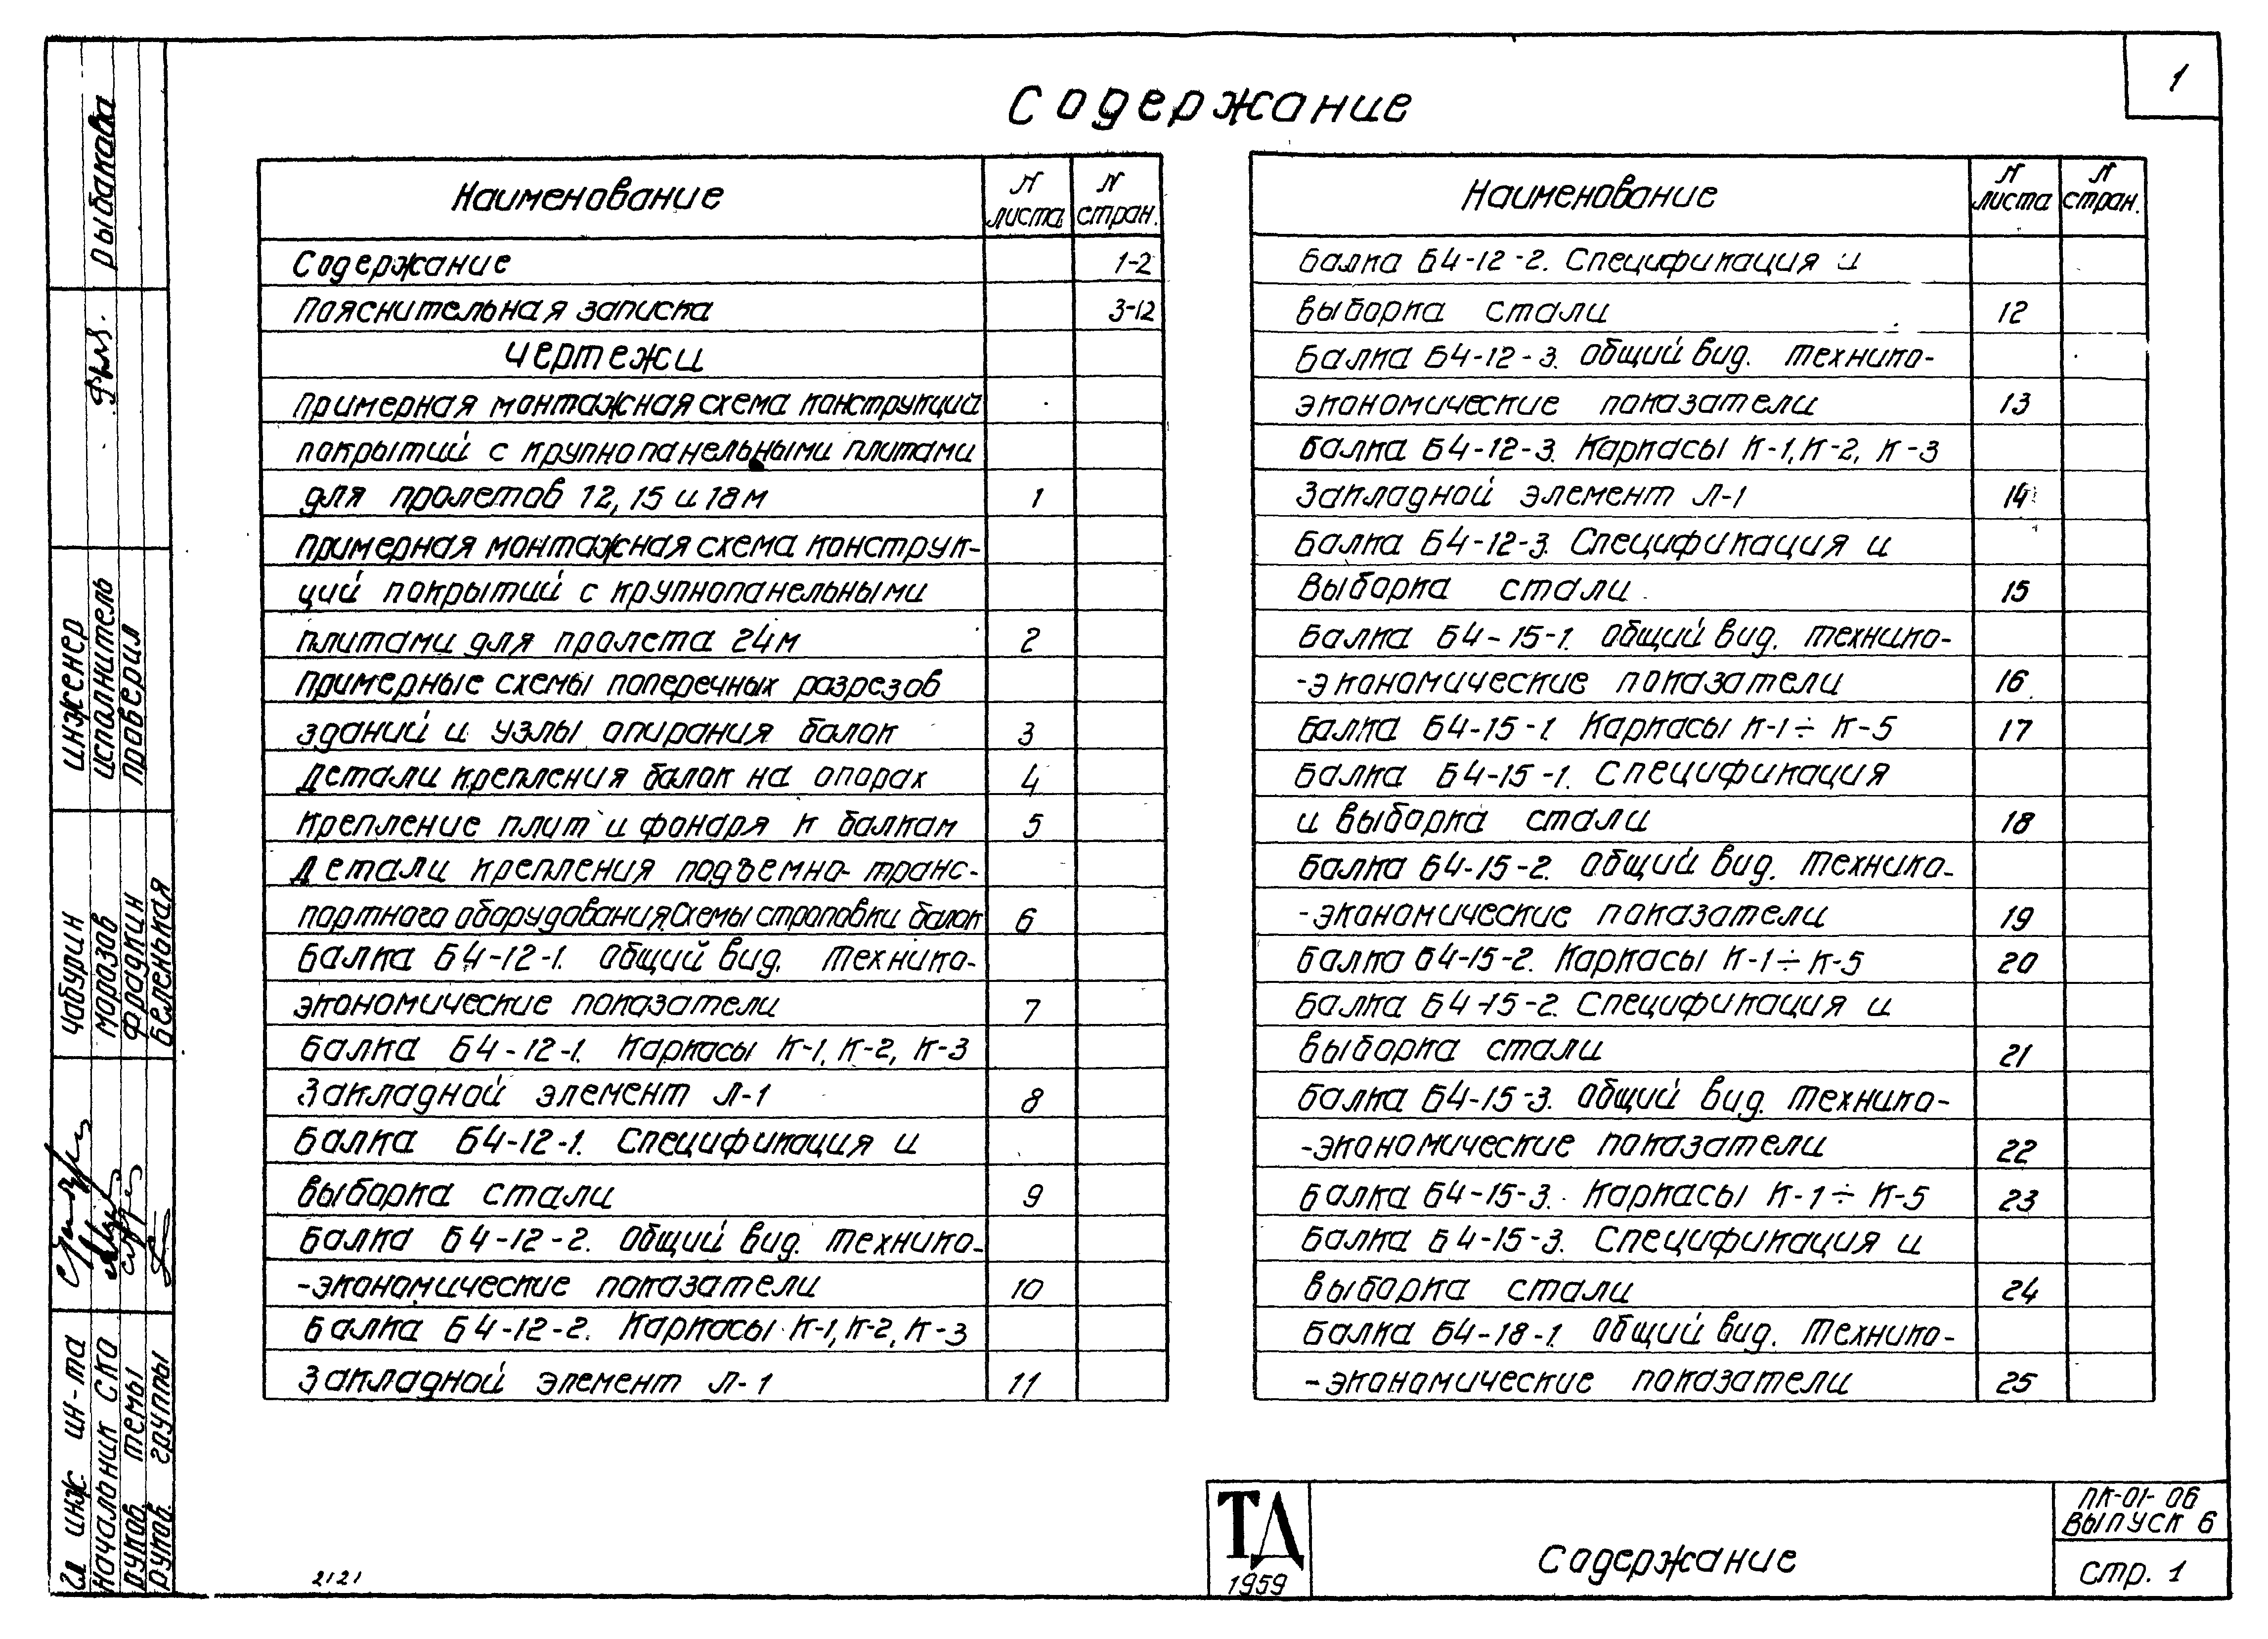 1
Содержание
Наименование N листа N стран.
Содержание 1-2
Пояснительная записка 3-12
Чертежи
Примерная монтажная схема конструкций
покрытий с крупнопанельными плитами
для пролетов 12, 15 и 18м 1
Примерная монтажная схема конструк-
ций покрытий с крупнопанельными
плитами для пролета 24м 2
Примерные схемы поперечных разрезов
зданий и узлы опирания балок 3
Детали крепления балок на опорах 4
Крепление плит и фонаря к балкам 5
Детали крепления подъемно-транс-
портного оборудования. Схемы строповки балок 6
Балка Б4-12-1. Общий вид. Технико-
экономические показатели 7
Балка Б4-12-1. Каркасы К-1, К-2, К-3
Закладной элемент Л-1 8
Балка Б4-12-1. Спецификация и
выборка стали 9
Балка Б4-12-2. Общий вид. Технико-
-экономические показатели 10
Балка Б4-12-2. Каркасы К-1, К-2, К-3
Закладной элемент Л-1 11
Наименование N листа N стран.
Балка Б4-12-2. Спецификация и
выборка стали 12
Балка Б4-12-3. Общий вид. Технико-
экономические показатели 13
Балка Б4-12-3. Каркасы К-1, К-2, К-3
Закладной элемент Л-1 14
Балка Б4-12-3. Спецификация и
Выборка стали 15
Балка Б4-15-1. Общий вид. Технико-
-экономические показатели 16
Балка Б4-15-1. Каркасы К-1÷К-5 17
Балка Б4-15-1. Спецификация
и выборка стали 18
Балка Б4-15-2. Общий вид. Технико-
-экономические показатели 19
Балка Б4-15-2. Каркасы К-1÷К-5 20
Балка Б4-15-2. Спецификация и
выборка стали 21
Балка Б4-15-3. Общий вид. Технико-
-экономические показатели 22
Балка Б4-15-3. Каркасы К-1÷К-5 23
Балка Б4-15-3. Спецификация и
выборка стали 24
Балка Б4-18-1. Общий вид. Технико-
-экономические показатели 25
Гл инж. ин-та Чабурин инженер Рыбакова
начальник СКО Морозов исполнитель
руков. темы Фрадкин проверил
руков. группы Беленькая
2121
ТД
1959
Содержание
ПК-01-06
Выпуск 6
стр. 1